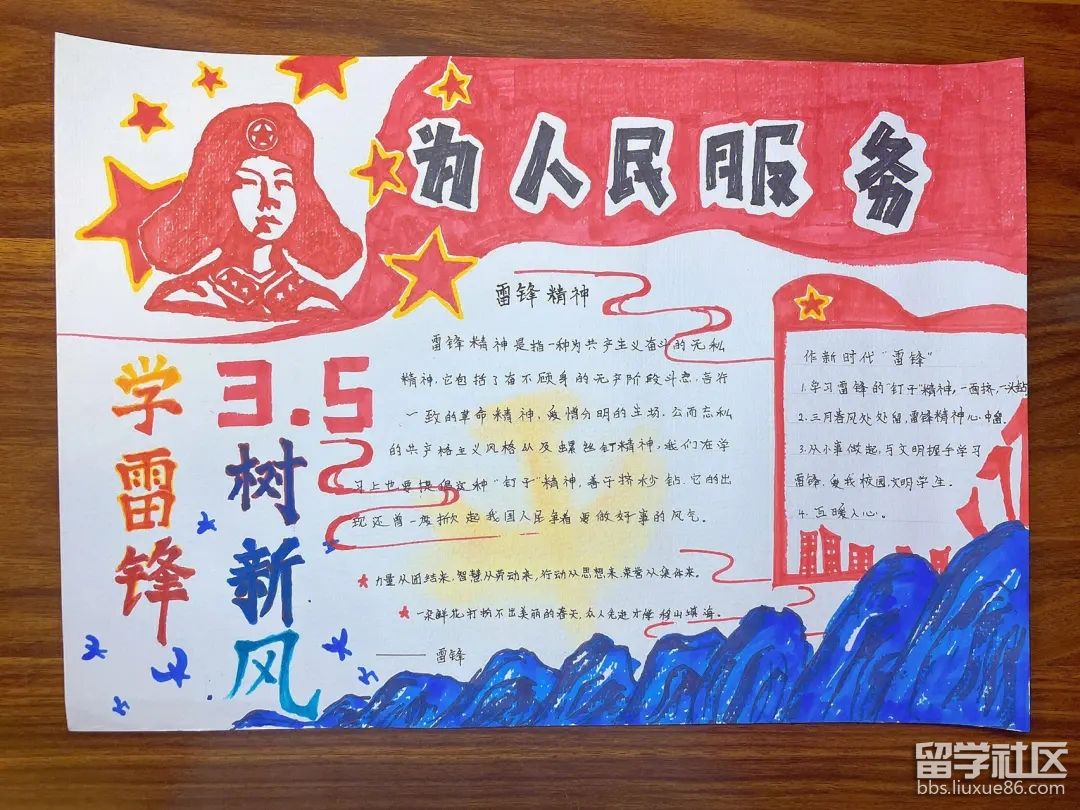 为人民服务
学雷锋
3.5
树新风
雷锋精神
雷锋精神是指一种为共产主义奋斗的无私
精神，它包括了奋不顾身的无产阶段斗志，言行
一致的革命精神，爱憎分明的立场，公而忘私
的共产格主义风格以及螺丝钉精神，我们在学
习上也要提倡这种“钉子”精神，善于挤妙钻，它的出
现还曾一度掀起我国人民争着要做好事的风气。
力量从团结来，智慧从劳动来，行动从思想来，荣誉从集体来。
一朵鲜花打扮不出美丽的春天，众人先进才能移山填海。
——雷锋
作新时代“雷锋”
1.学习雷锋的“钉子”精神，一面挤，一头钻
2.三月春风处处留，雷锋精神心中留。
3.从小事做起，与文明握手学习
雷锋，争我校园文明学生。
4.互暖人心。
留学社区
bbs.liuxue86.com